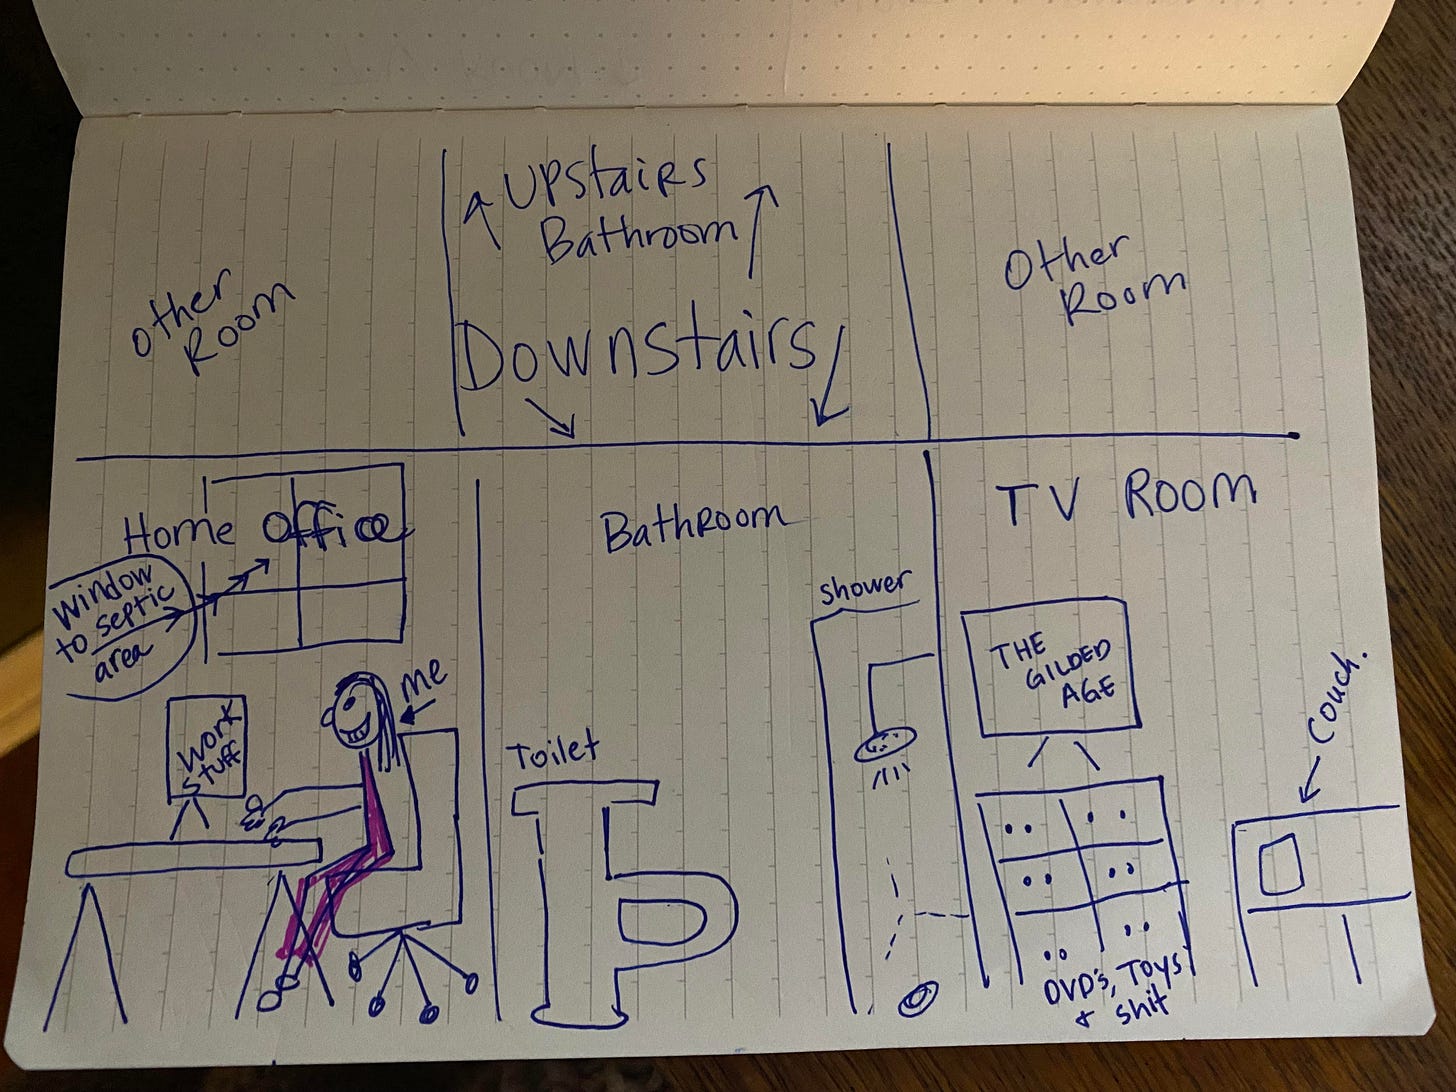 ↑ UPStairs ↑
Bathroom
Other
Room
Other
Room
Downstairs
Home Office
Window
to septic
area
Work
Stuff
me
Bathroom
Toilet
Shower
TV Room
THE
GILDED
AGE
Couch.
DVD's, Toys
+ shit